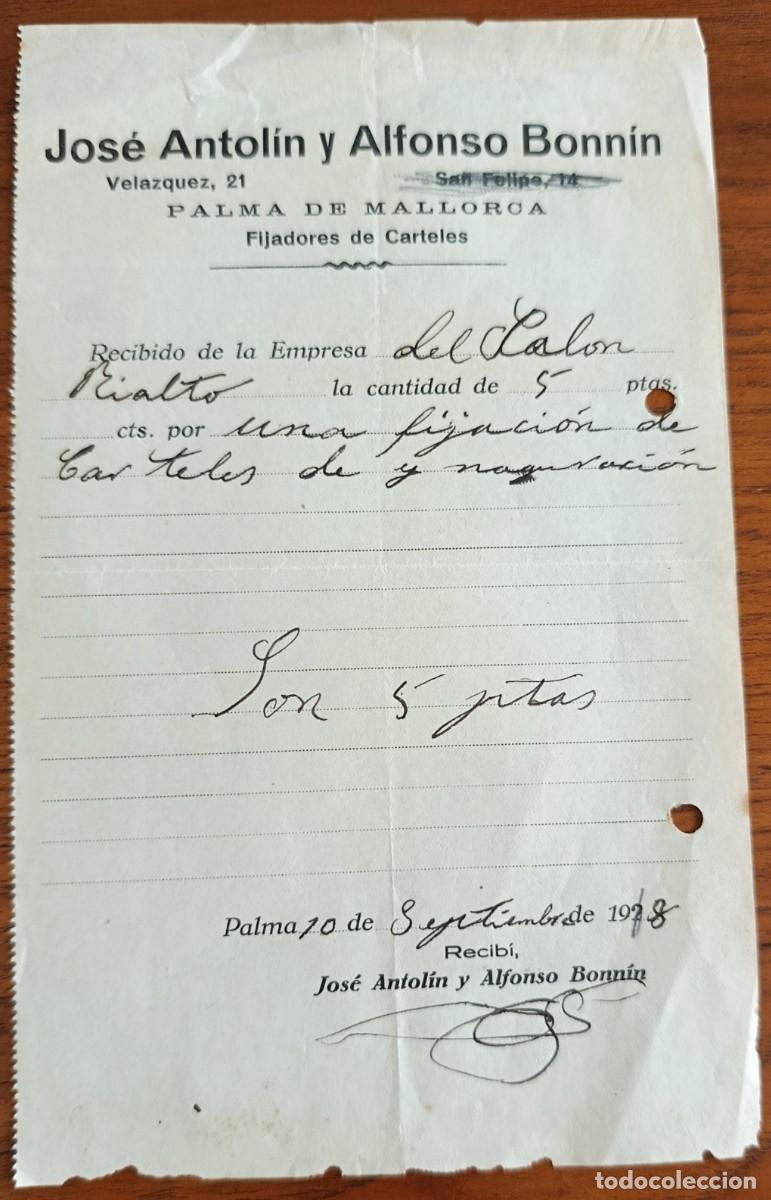 José Antolín y Alfonso Bonnín
Velazquez, 21 San Felipe, 14
PALMA DE MALLORCA
Fijadores de Carteles
Recibido de la Empresa del Salon
Rialto la cantidad de 5 ptas.
cts. por una fijación de
Carteles de ynaguración
Son 5 ptas
Palma 10 de Septiembre de 19
Recibí,
José Antolín y Alfonso Bonnín
todocoleccion